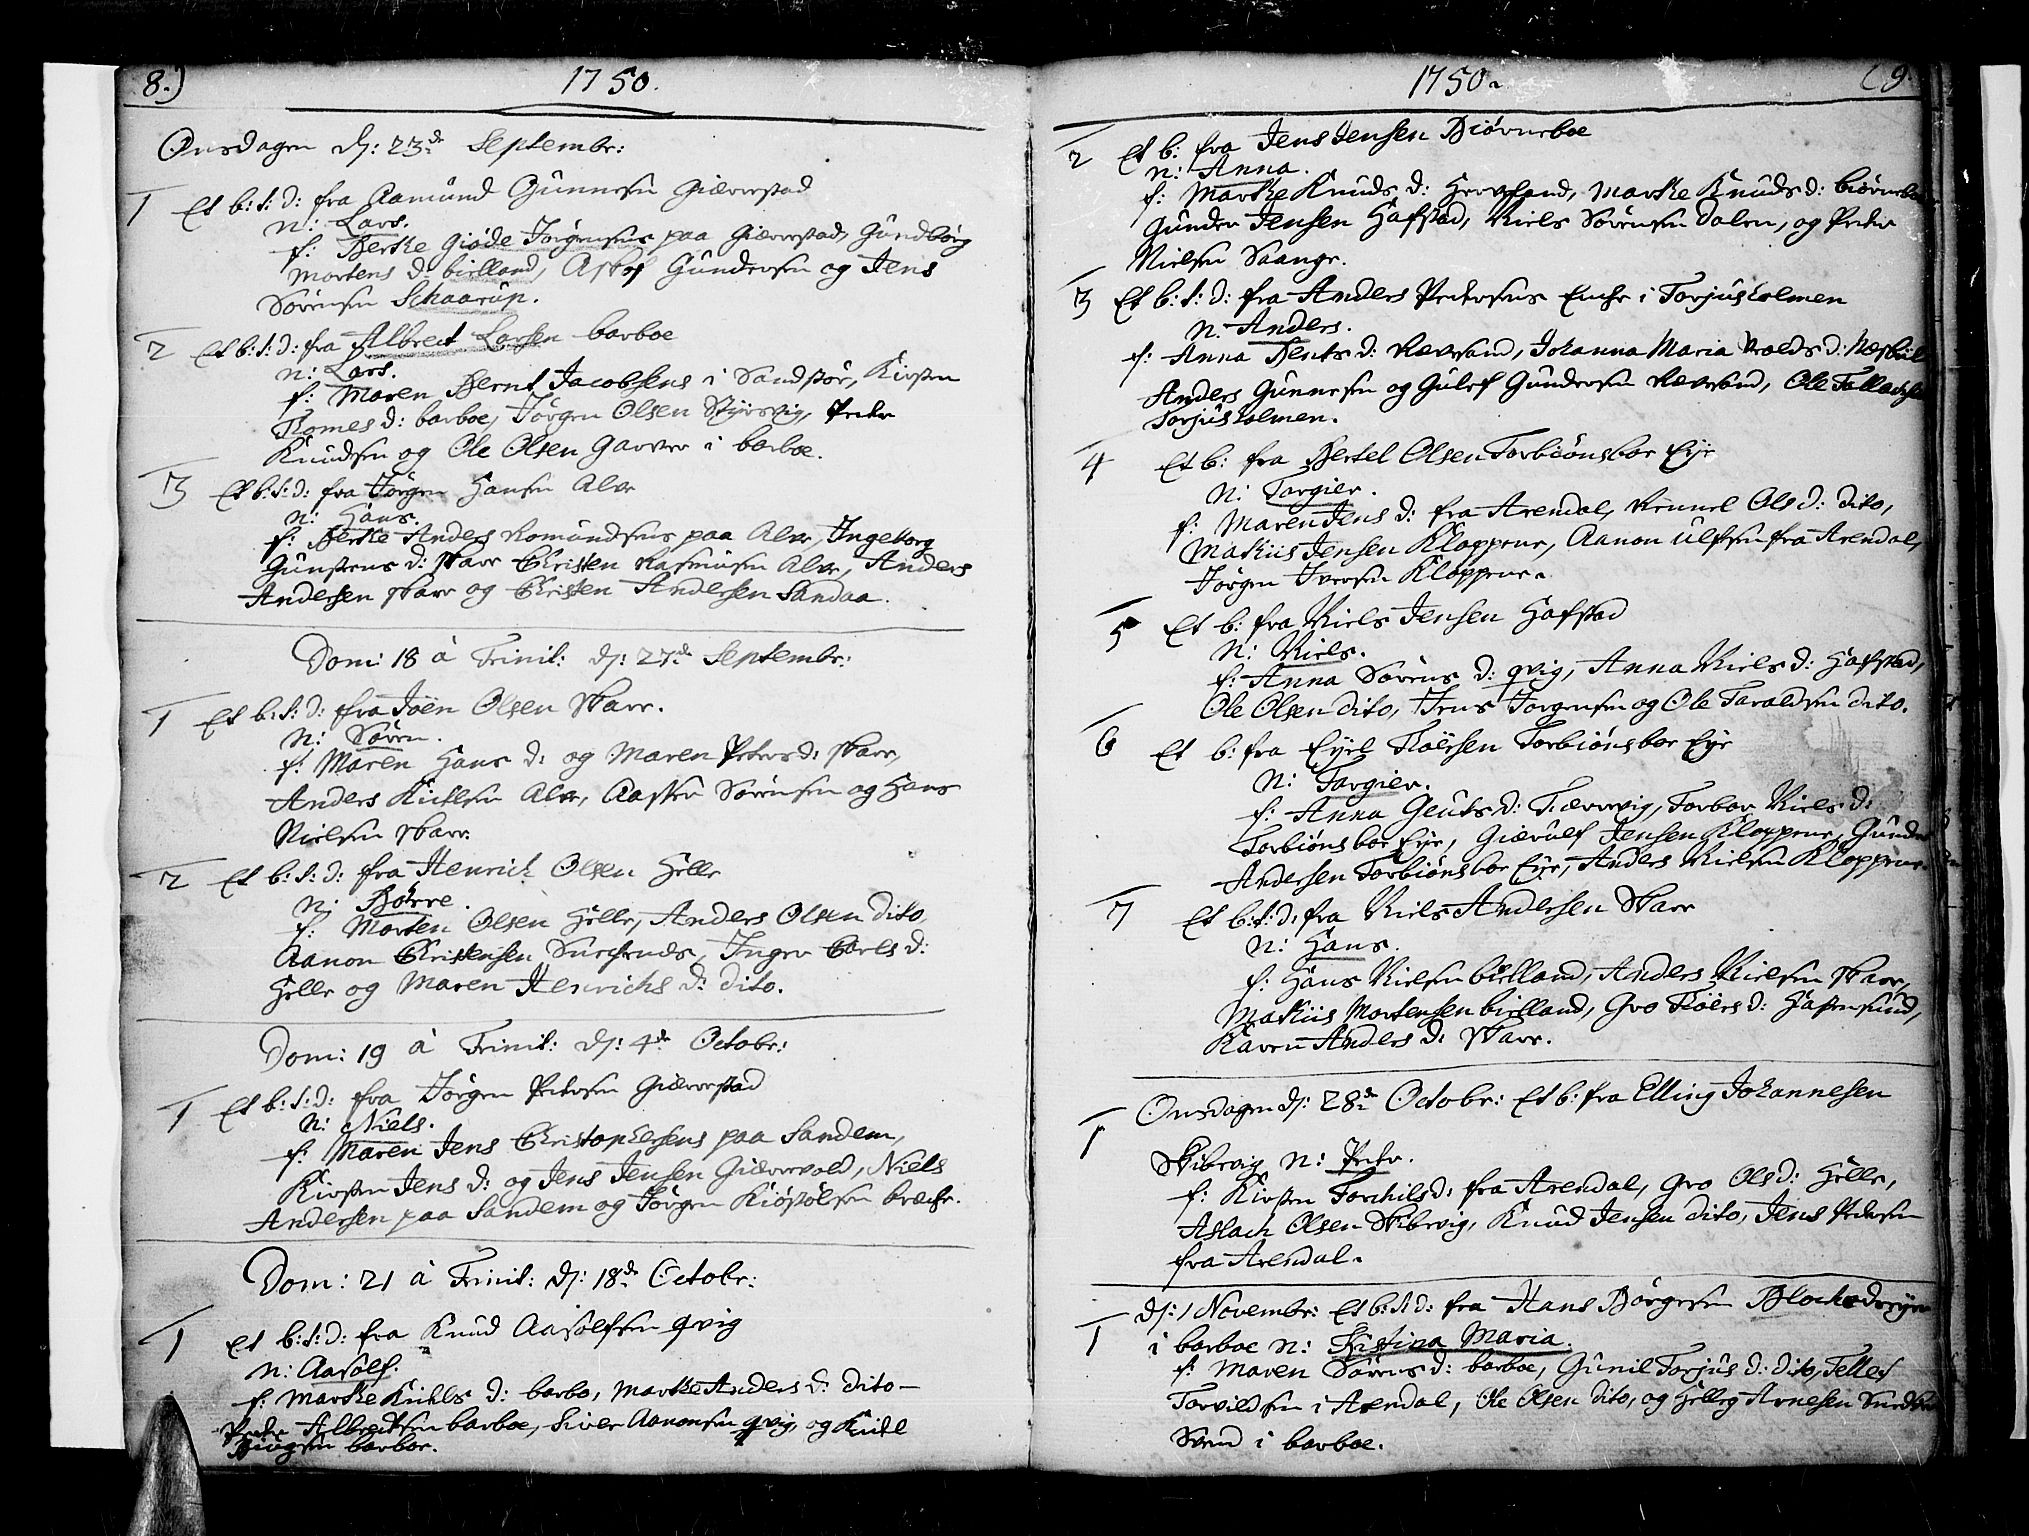 8.)
1750.
Onsdagen d: 23de Septembr:
1 Et b: f: d: fra Aamund Gunnesen Gierrestad
n: Lars.
f: Berthe Giøde Jørgensens paa Gierrestad, Gundborg
Mortens d: birlland, Gundersen og Jens
Sørensen Schaarup.
2 Et b: f: d: fra Albrect Larsen barboe
n: Lars.
f: Maren Bernt Jacobsens i Sandstøe, Kirsten
Thomes d: barboe, Jørgen Olsen Styrsvig, Peder
Knudsen og Ole Olsen Garver i barboe.
3 Et b: f: d: fra Jørgen Hansen Alve
n: Hans.
f: Berthe Anders Romundsens paa Alve, Ingeborg
Gunstens d: Skare Christen Rasmusen Alve, Anders
Andersen Skare og Christen Andersen Sandaa.
Dom: 18 à Trinit: d: 27de Septembr:
1 Et b: f: d: fra Joen Olsen Skare.
n: Søren.
f: Maren Hans d: og Maren Peders d: Skare,
Anders Kittelsen Alve, Aasten Sørensen og Hans
Nielsen Skare.
2 Et b: f: d: fra Henrich Olsen Helle
n: Børre.
f: Morten Olsen Helle, Anders Olsen dito,
Aanon Christensen Inger Carls d:
Helle og Maren Henrichs d: dito.
Dom: 19 à Trinit: d: 4de Octobr:
1 Et b: f: d: fra Jørgen Pedersen Gierrestad
n: Niels.
f: Maren Jens Christophersens paa Sandem,
Kirsten Jens d: og Jens Jensen Gierrevold, Niels
Andersen paa Sandem og Jørgen Kiøstølsen bræche.
Dom: 21 à Trinit: d: 18de Octobr:
1 Et b: f: d: fra Knud Aasølfsen qvig
n: Aasølf.
f: Marthe Kittels d: barbo, Marthe Anders d: dito
Peder Albrectsen barboe, Siver Aanonsen qvig, og Kittel
barboe.
1750.
(9.
2 Et b: fra Jens Jensen Biørneboe
n: Anna.
f: Marthe Knuds d: Marthe Knuds d:
Gunder Jensen Hafstad, Niels Sørensen Dalen, og Peder
Nielsen Saange.
3 Et b: f: d: fra Anders Pedersens Enche i Torjusholmen
n: Anders.
f: Anna Bents d: Rævesand, Johanna Maria d:
Anders Gunnesen og Gulef Gundersen Rævesand, Ole
Torjusholmen.
4 Et b: fra Bertel Olsen Torbiønsboe Eye
n: Torgier.
f: Maren Jens d: fra Arendal, Ols d: dito,
Mathis Jensen Kloppene, Aanon Ulfsen fra Arendal,
Jørgen Iversen Kloppene.
5 Et b: fra Niels Jensen Hafstad
n: Niels.
f: Anna Sørens d: qvig, Anna Niels d: Hafstad,
Ole Olsen dito, Jens Jorgensen og Ole Taraldsen dito.
6 Et b: fra Eyel Roersen Torbiønsboe Eye
n: Torgier.
f: Anna Gents d: Torbor Niels d:
Torbiønsboe Eye, Gierulf Jensen Kloppene, Gunder
Andersen Torbiønsboe Eye, Anders Nielsen Kloppene.
7 Et b: f: d: fra Niels Andersen Skare
n: Hans.
f: Hans Nielsen birlland, Anders Nielsen Skare,
Mathis Mortensen birlland, Gro Roers d: Hastensund,
Karen Anders d: Skare.
1 Onsdagen d: 28de Octobr: Et b: fra Elling Johannesen
Skibevig n: Peder.
f: Kirsten Torchils d: fra Arendal, Gro Ols d: Helle,
Aslach Olsen Skibevig, Knud Jensen dito, Jens Pedersen
fra Arendal.
1 d: 1 Novembr: Et b: f: d: fra Hans Børgesen
i barboe n: Christina Maria.
f: Maren Sørens d: barboe, Gunil Torjus d: dito, Tellef
Torvildsen i Arendal, Ole Olsen dito, og Helleg Arnesen
Svend i barboe.